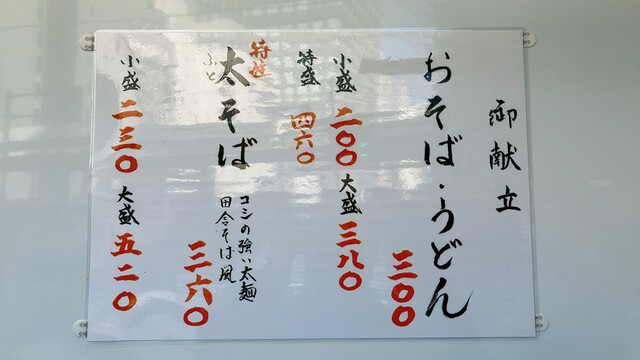 御献立
おそば・うどん
三〇〇
小盛 二〇〇 大盛 三八〇
特盛 四六〇
特注
太そば
ふと
コシの強い太麺
田舎そば風
三六〇
小盛 二三〇 大盛 五二〇